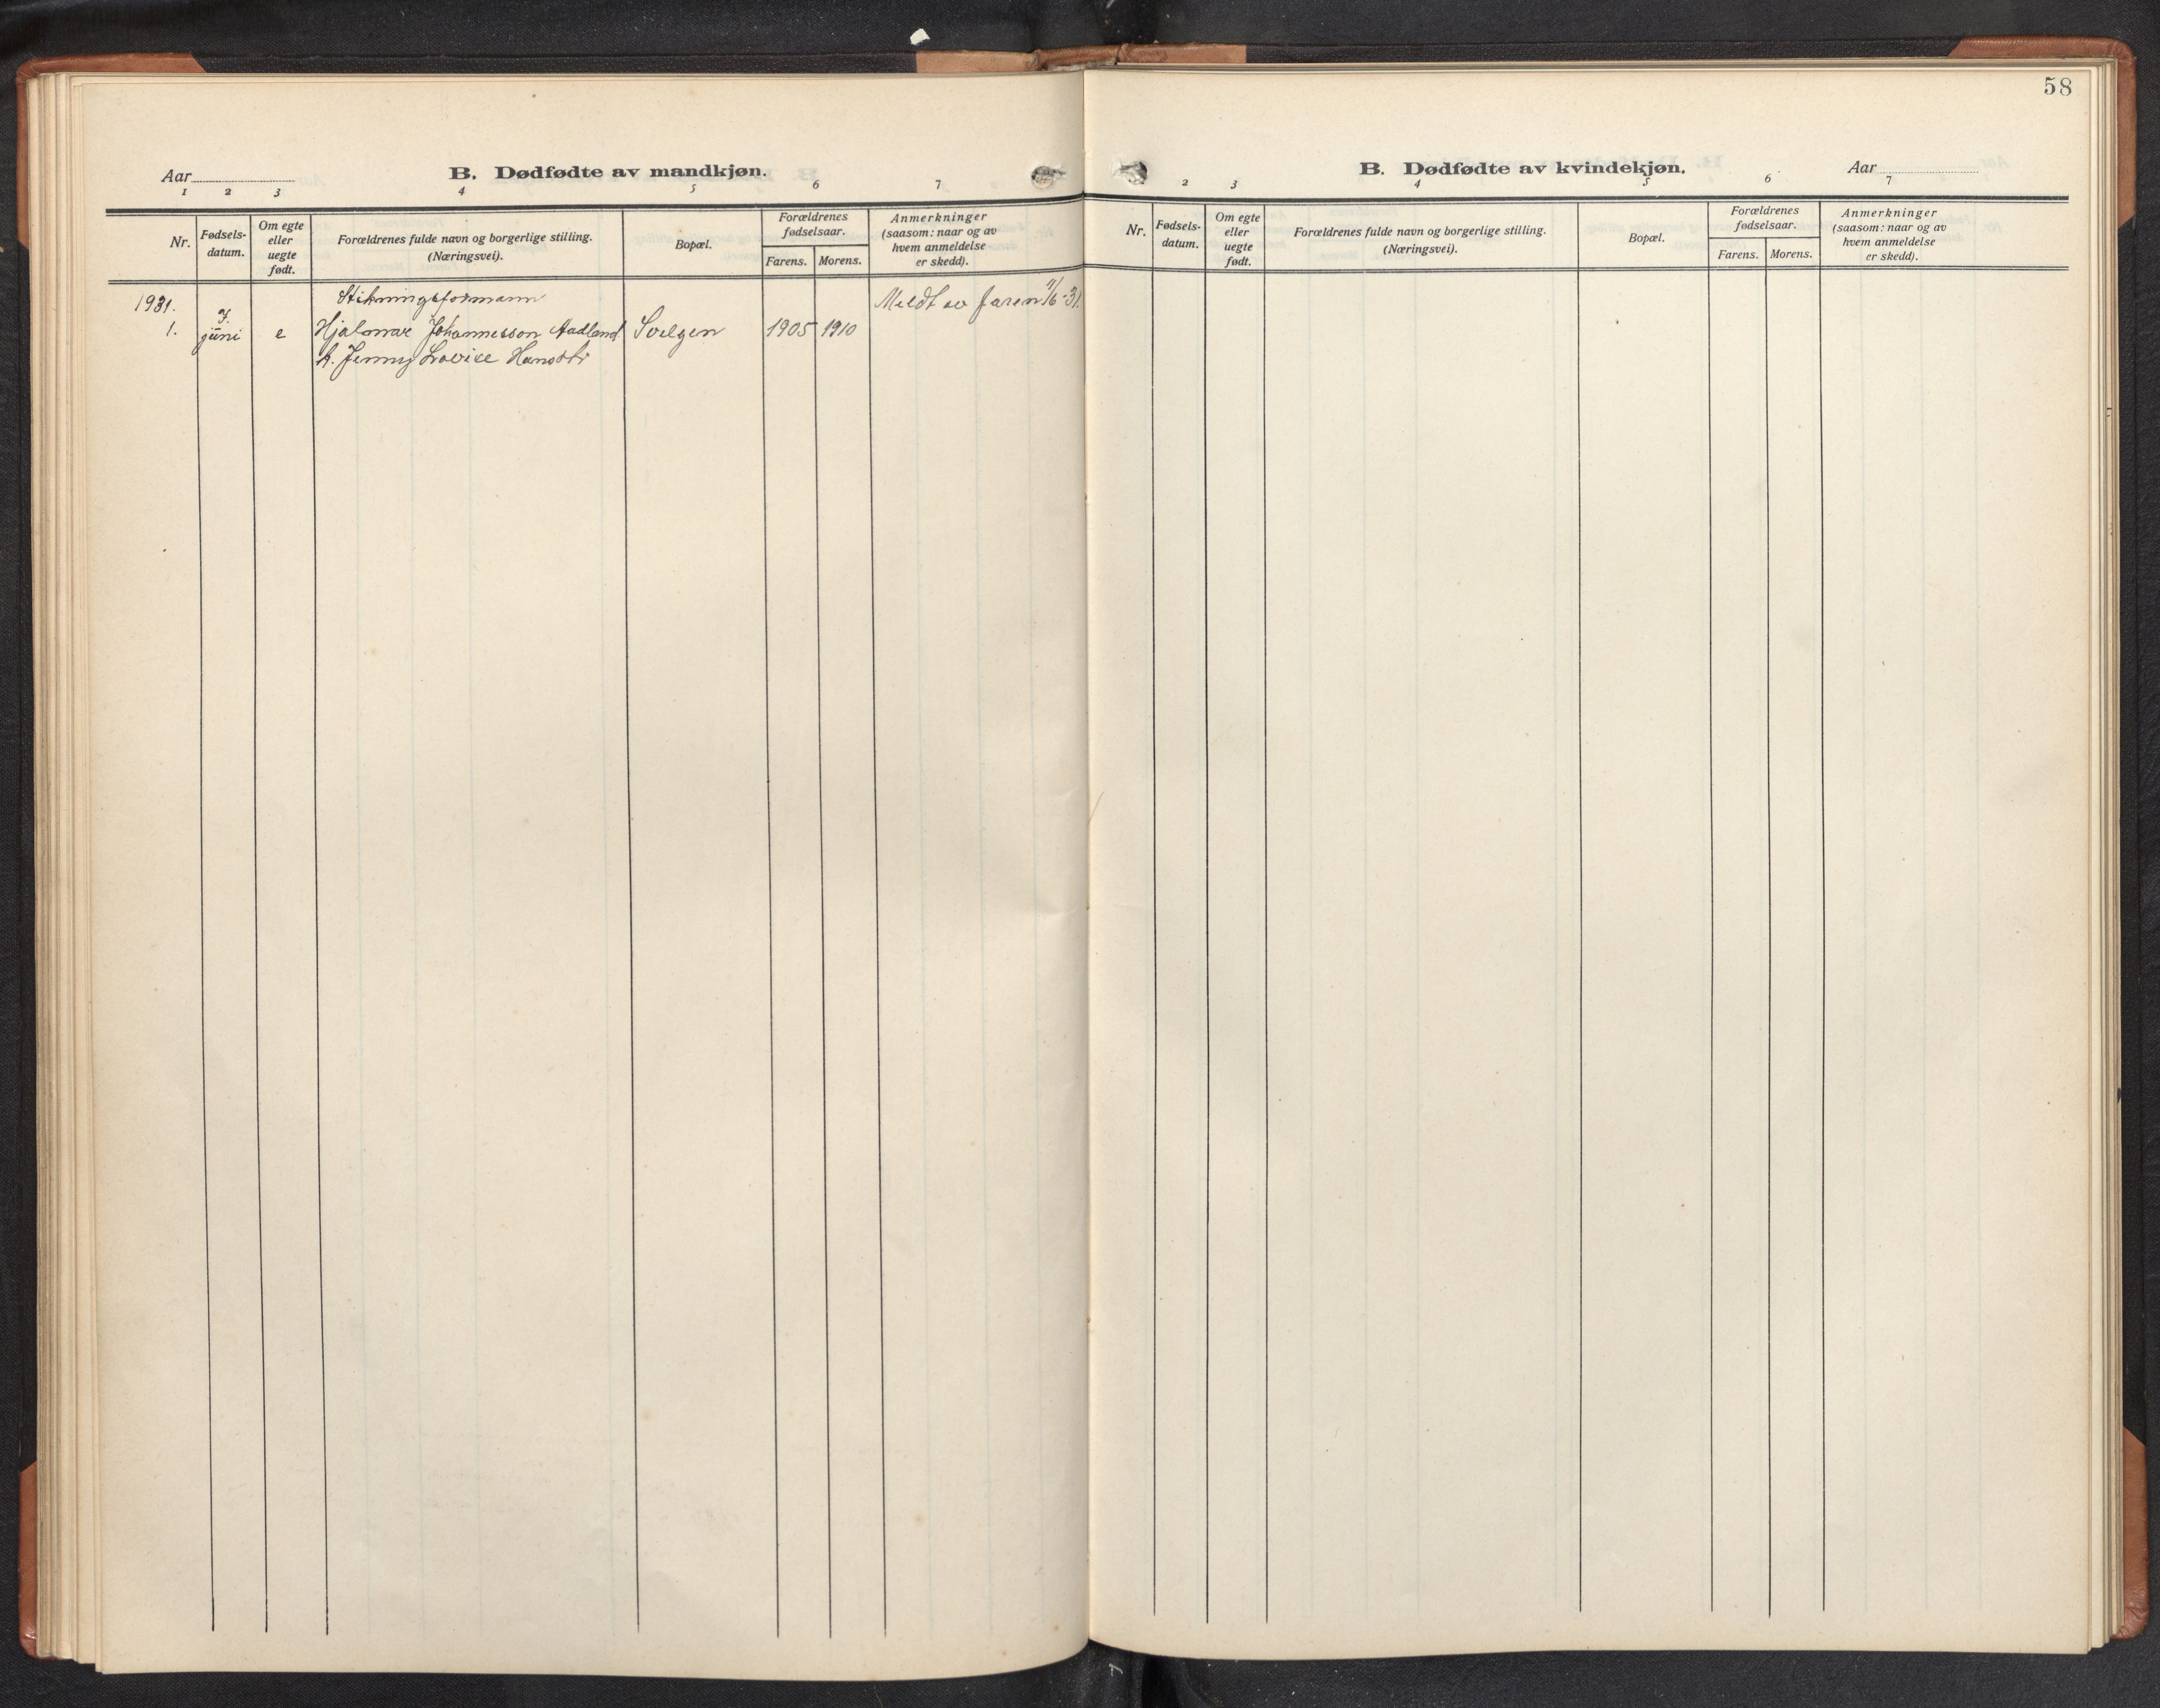 58
Aar
B. Dødfødte av mandkjøn.
1 2 3 4 5 6 7
Nr.
Fødsels-
datum.
Om egte
eller
uegte
født.
Forældrenes fulde navn og borgerlige stilling.
(Næringsvei).
Bopæl.
Forældrenes
fødselsaar.
Farens. Morens.
Anmerkninger
(saasom: naar og av
hvem anmeldelse
er skedd).
1931. Stikningsformann Meldt av faren 11/6-31.
1. 7. juni e Hjalmar Johannesson Aadland Svelgen 1905 1910
h. Jenny Lovise Hansdtr
B. Dødfødte av kvindekjøn.
Aar
2 3 4 5 6 7
Nr.
Fødsels-
datum.
Om egte
eller
uegte
født.
Forældrenes fulde navn og borgerlige stilling.
(Næringsvei).
Bopæl.
Forældrenes
fødselsaar.
Farens. Morens.
Anmerkninger
(saasom: naar og av
hvem anmeldelse
er skedd).